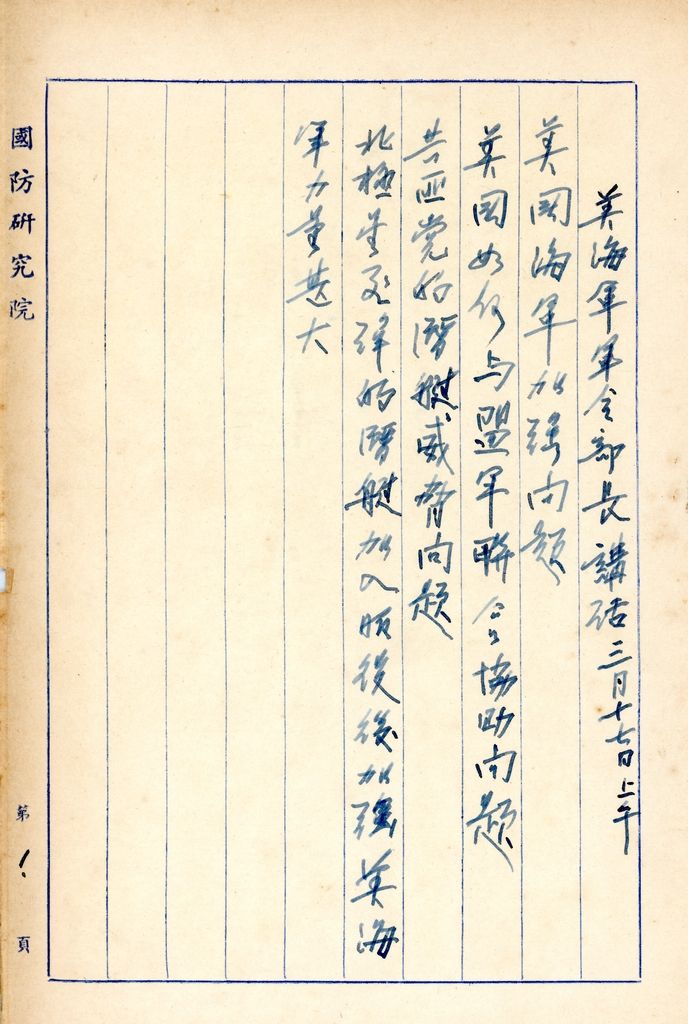 美海軍軍令部長講话三月十七日上午
美國海軍加强问题
英国如何与盟军聯合協助问题
共匪党的潛艇威脅问题
北極星飛弹的潛艇加入服役後加强美海
軍力量甚大
國防研究院
第1頁